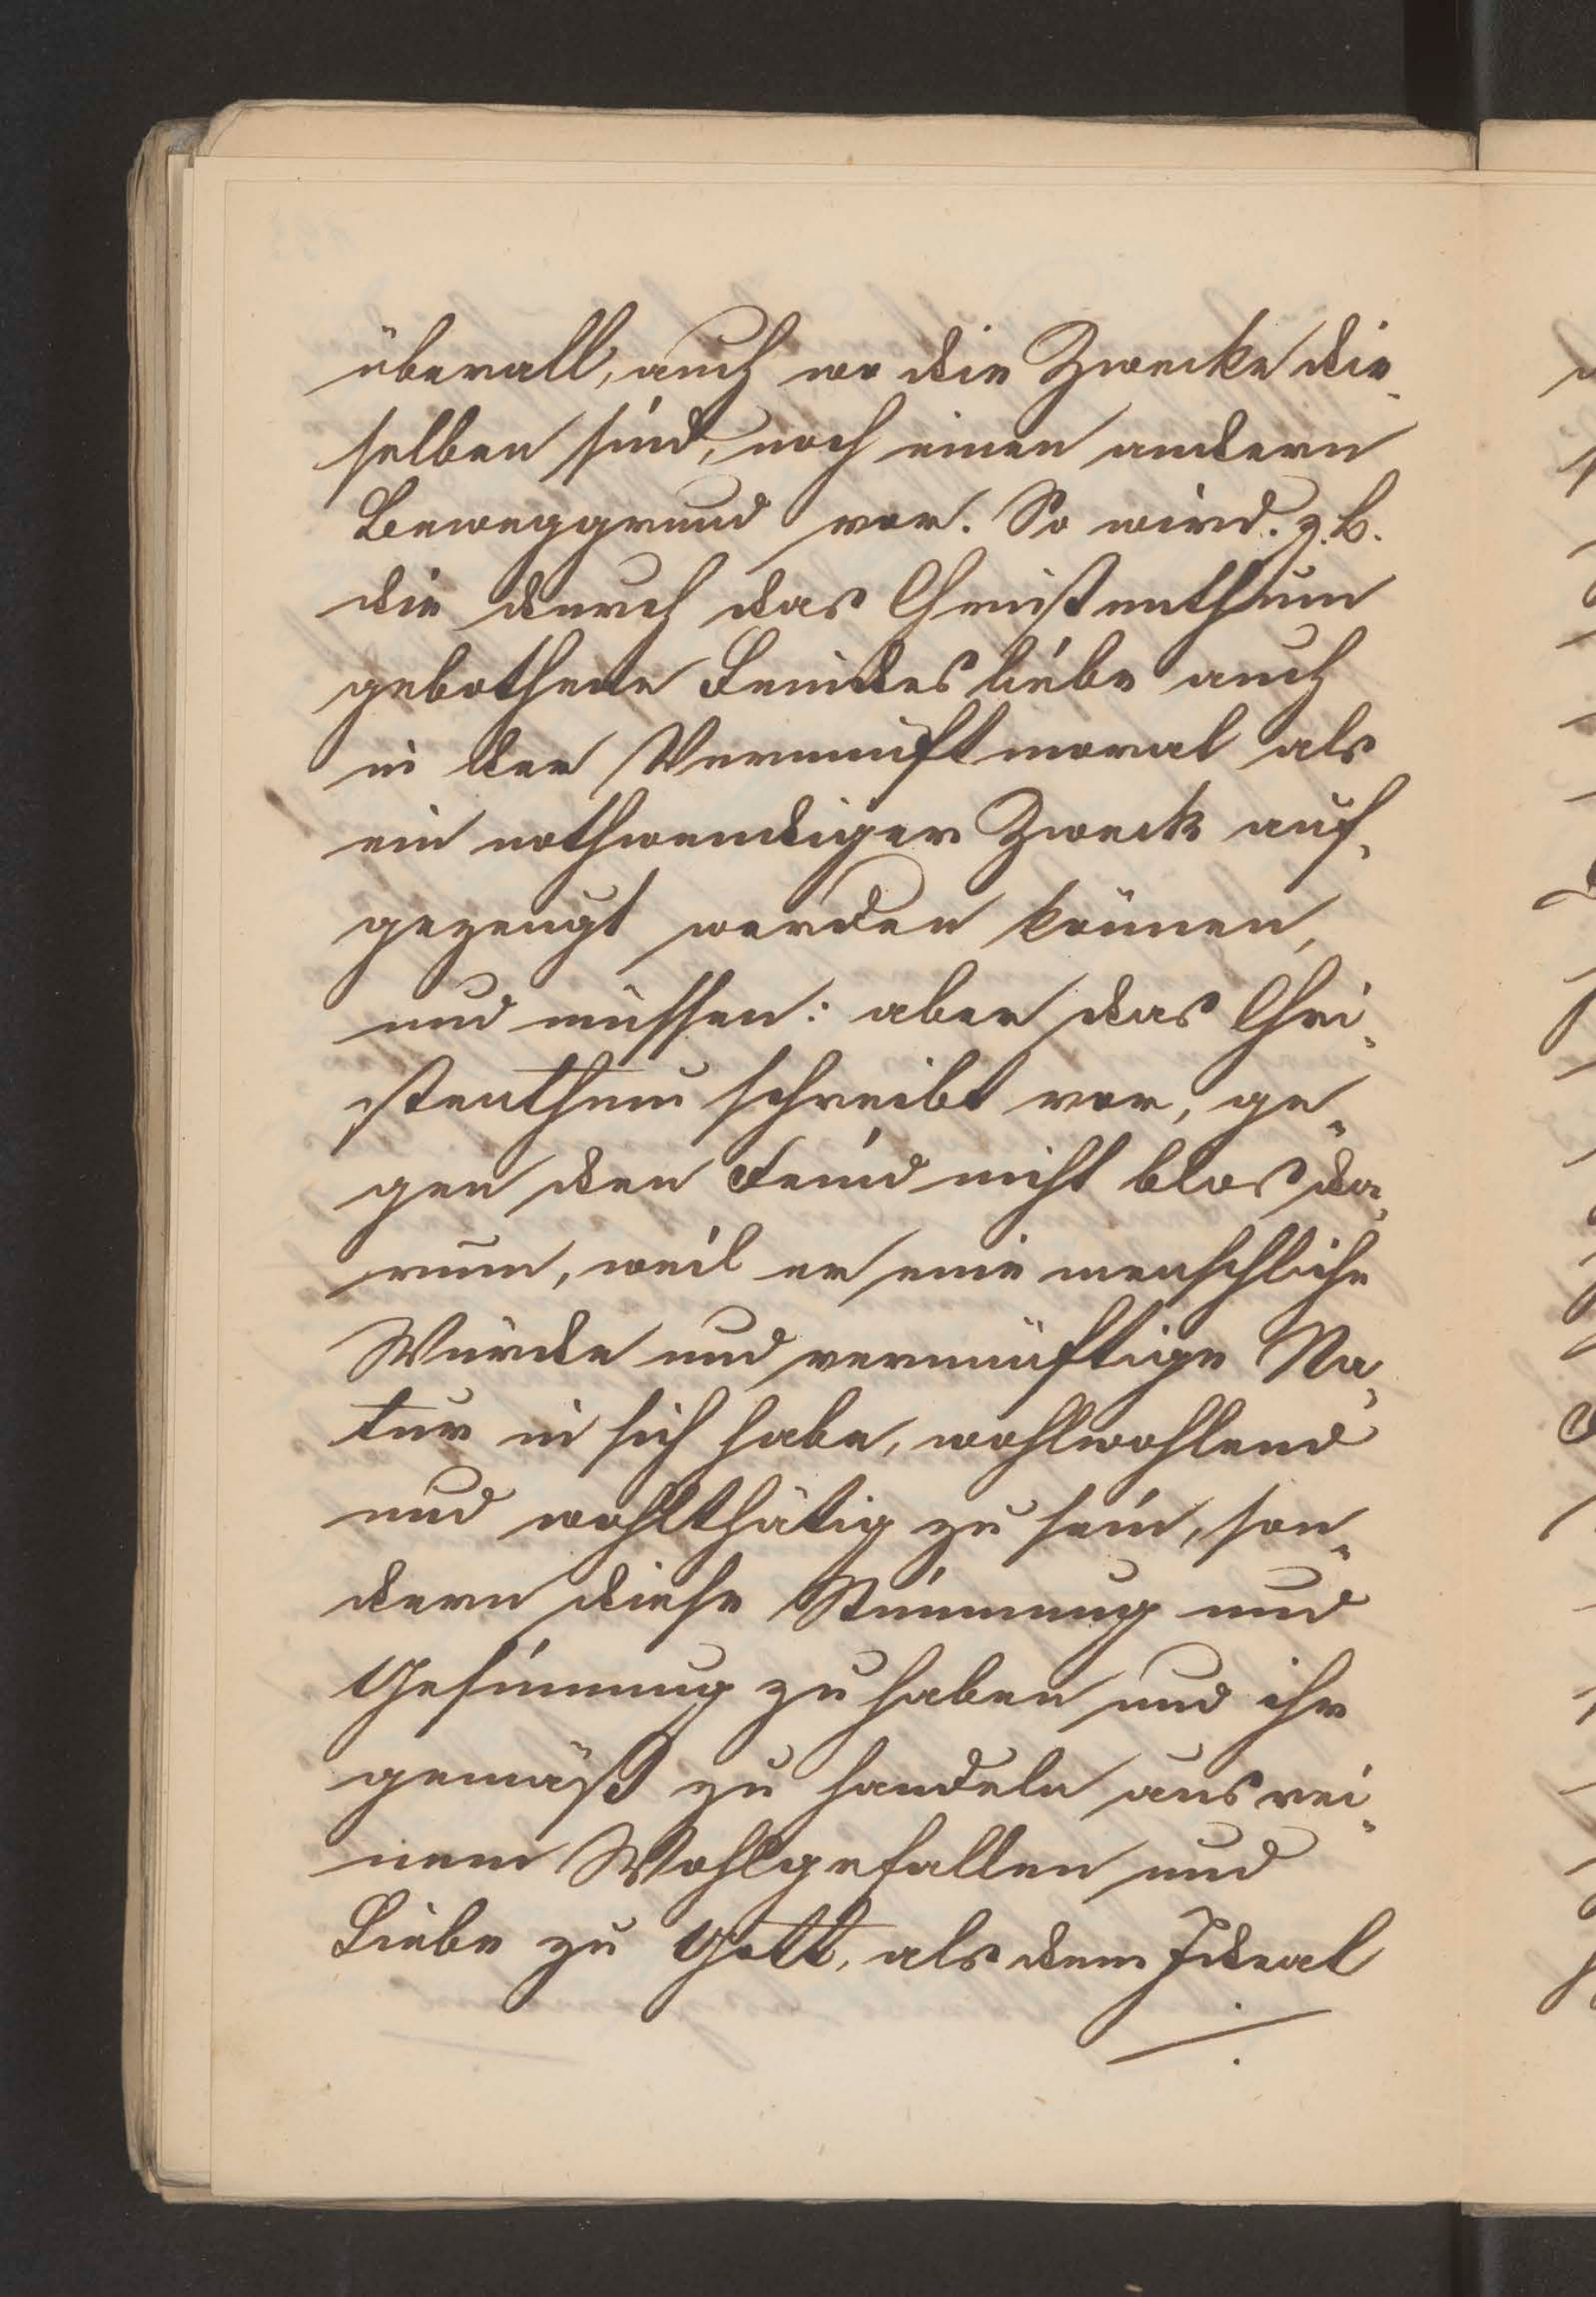 überall, auch wo die Zwecke die-
selben sind, noch einen andern
Beweggrund vor. So wird. z. B.
die durch das Christenthum
gebothene Feindesliebe auch
in der Vernunftmoral als
ein nothwendiger Zweck auf-
gezeugt werden können,
und müssen: aber das Chri-
stenthum schreibt vor, ge-
gen den Feind nicht blos da-
rum, weil er eine menschliche
Würde und vernünftige Na-
tur in sich habe, wohlwohlend
und wohlthätig zu sein, son-
dern diese Stimmung und
Gesinnung zu haben und ihr
gemäß zu handeln aus rei-
nem Wohlgefallen und
Liebe zu Gott, als dem Ideal